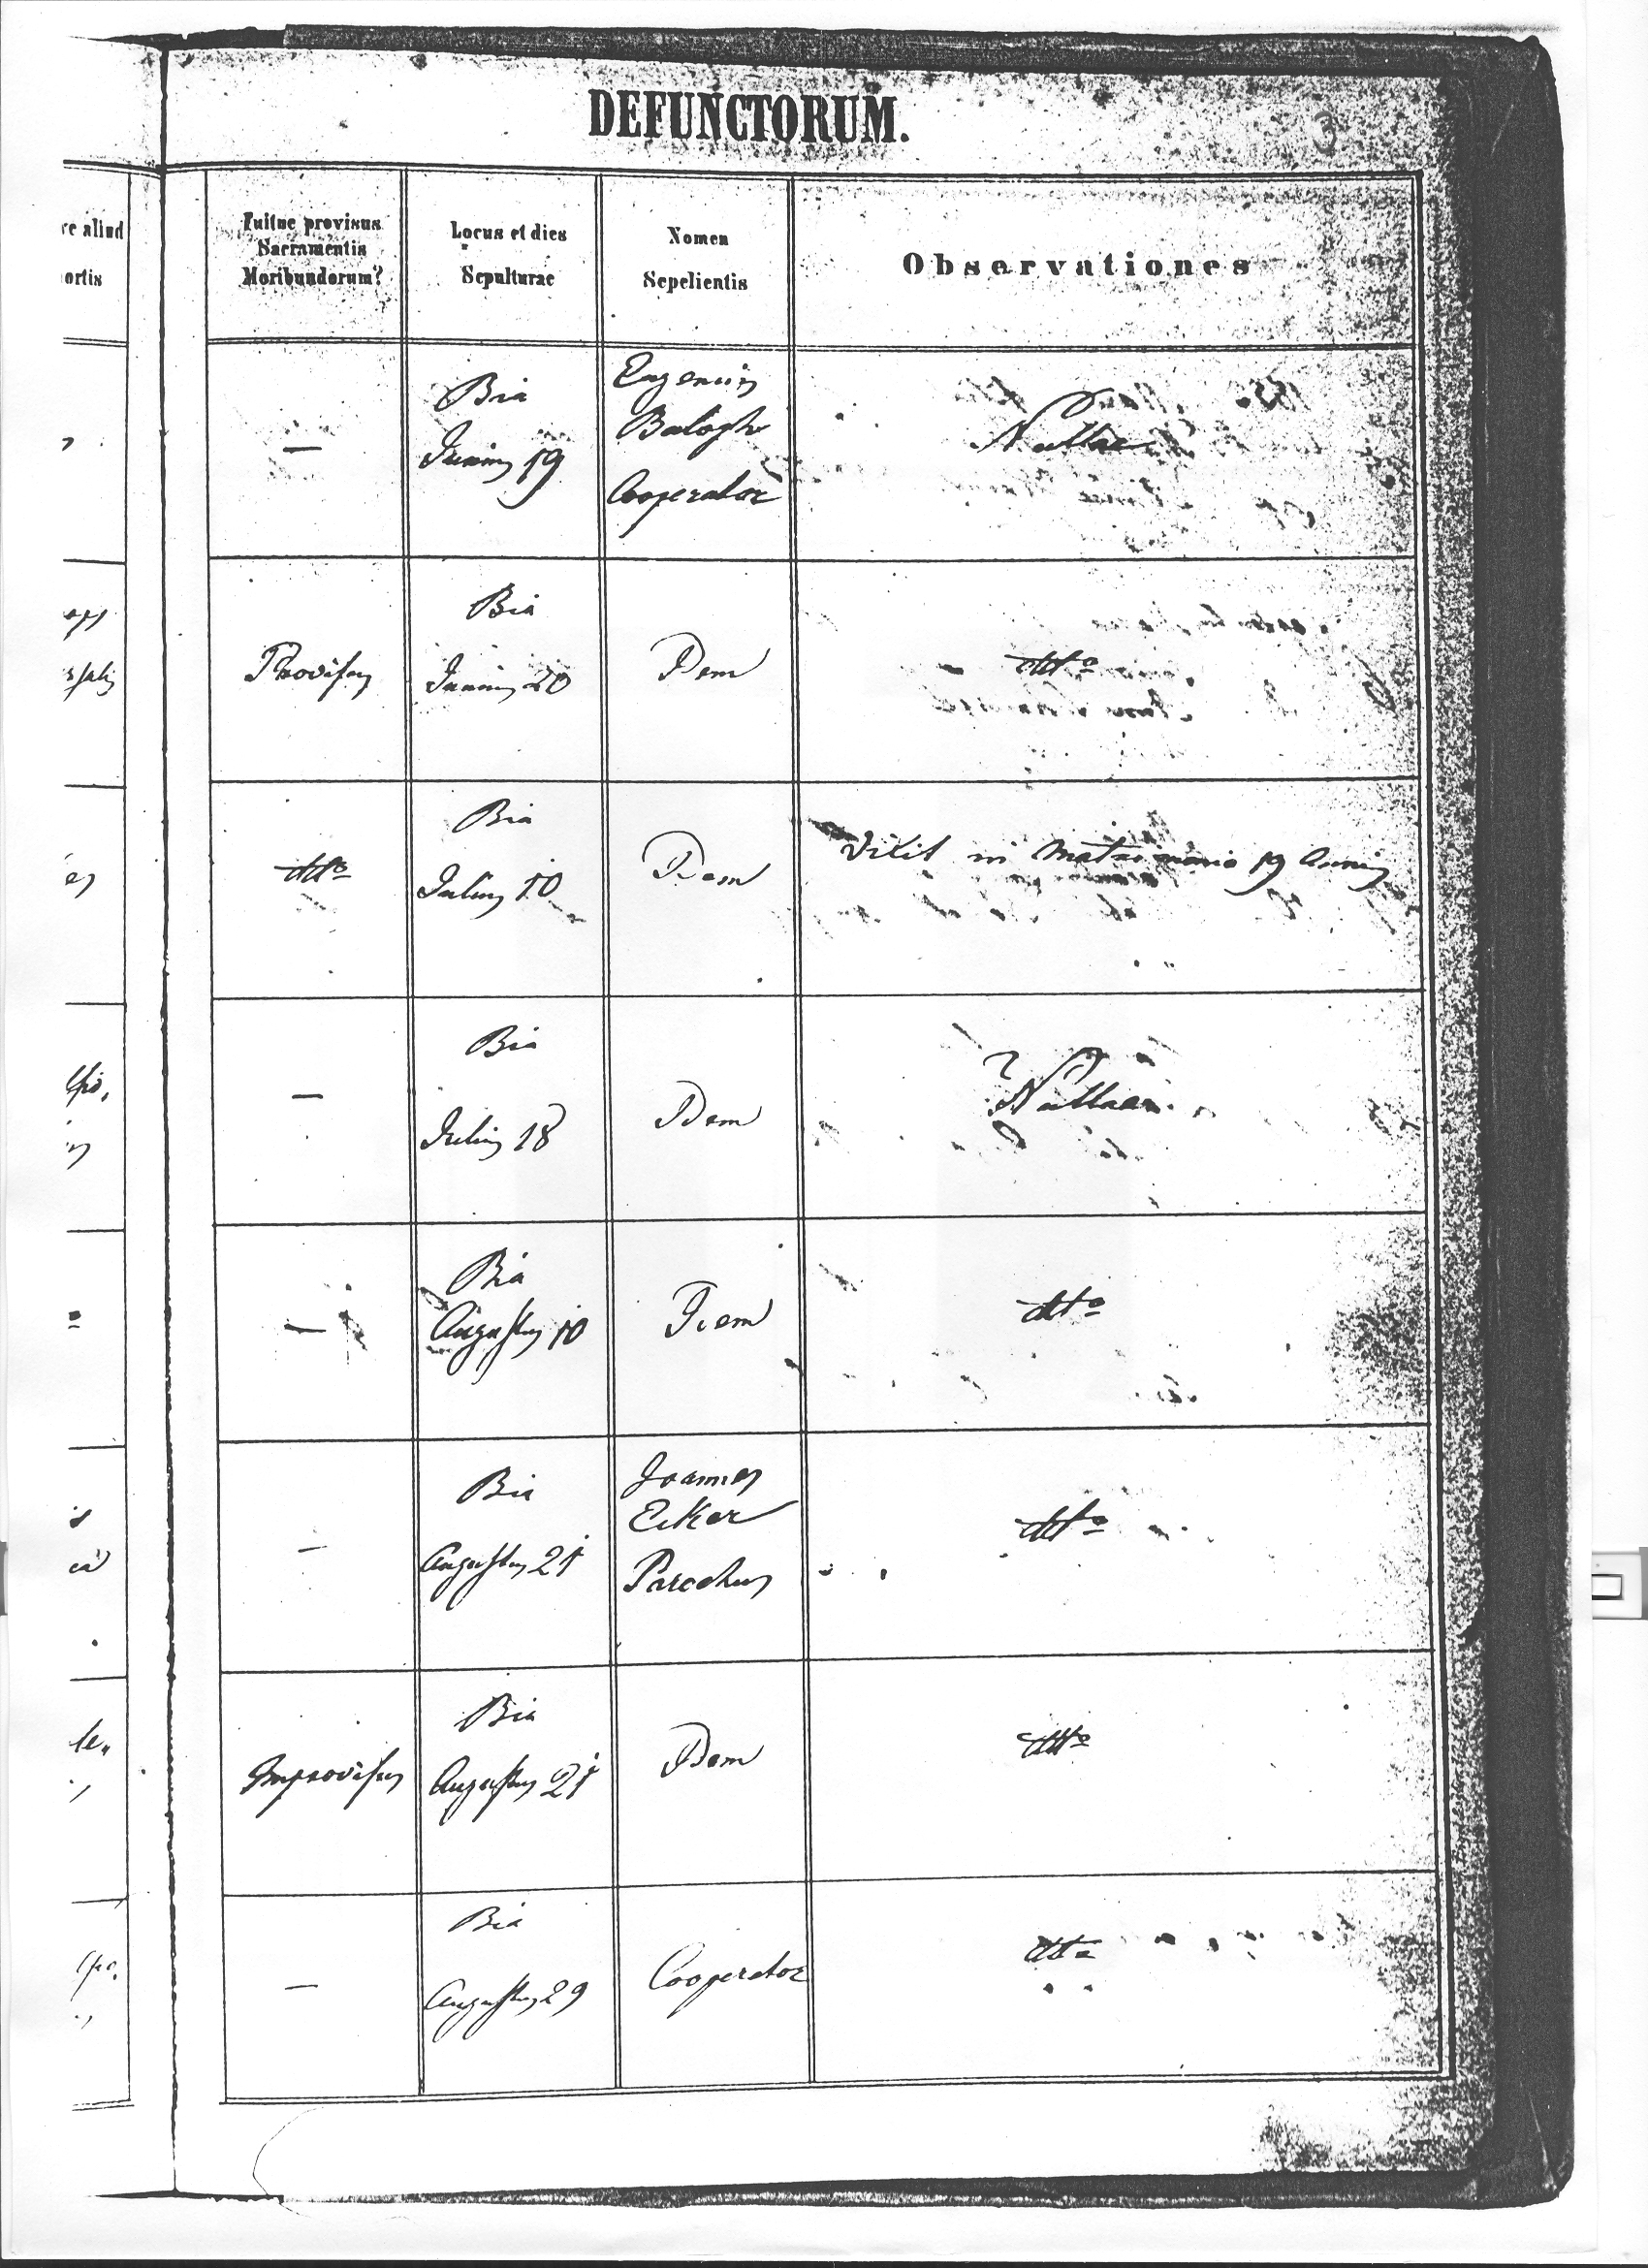 DEFUNCTORUM.
3
re aliud
ortis
Fuitne provisus
Sacramentis
Moribundorum?
Locus et dies
Sepulturae
Nomen
Sepelientis
Observationes
—
Bia
Junius 19
Eugenius
Balogh
Cooperator
Nullae
Provisus
Bia
Junius 20
Idem
dtto
dtto
Bia
Julius 10
Idem
Vixit in Matrimonio 19 Annis
—
Bia
Julius 18
Idem
Nullae
—
Bia
Augustus 10
Idem
dtto
—
Bia
Augustus 21
Joannes
Ecker
Parochus
dtto
Improvisus
Bia
Augustus 21
Idem
dtto
—
Bia
Augustus 29
Cooperator
dtto